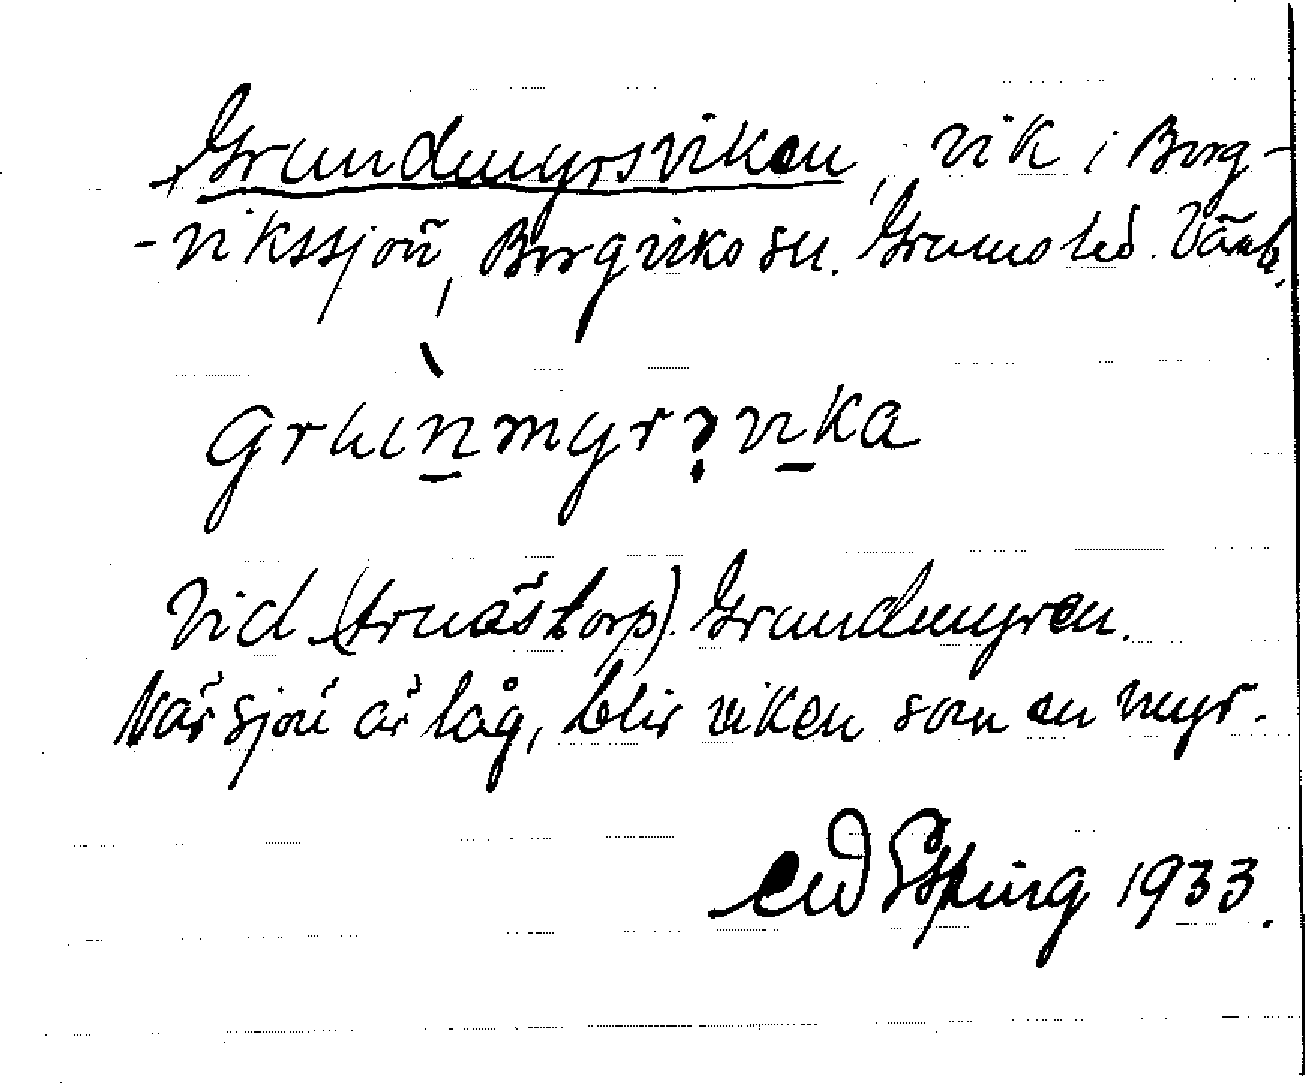 Grundmyrsviken, vik i Borg-
-vikssjön, Borgviks sn. Grums hd. Värml.
gruinmyrsvika
Vid (Årnästorp). Grundmyren.
När sjön är låg, blir viken som en myr.
Esping 1933.